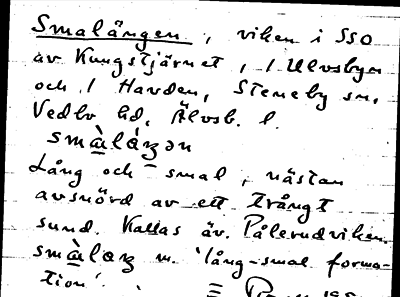 Smalången, viken i SSO
av Kungstjärnet, / Ulvsbyn
och / Havden, Steneby sn,
Vedbo hd, Älvsb. l.
smàláŋən
Lång och smal, nästan
avsnörd av ett trångt
sund. Kallas äv. Pålerudviken.
smàlaŋ m. 'lång-smal forma-
tion'.